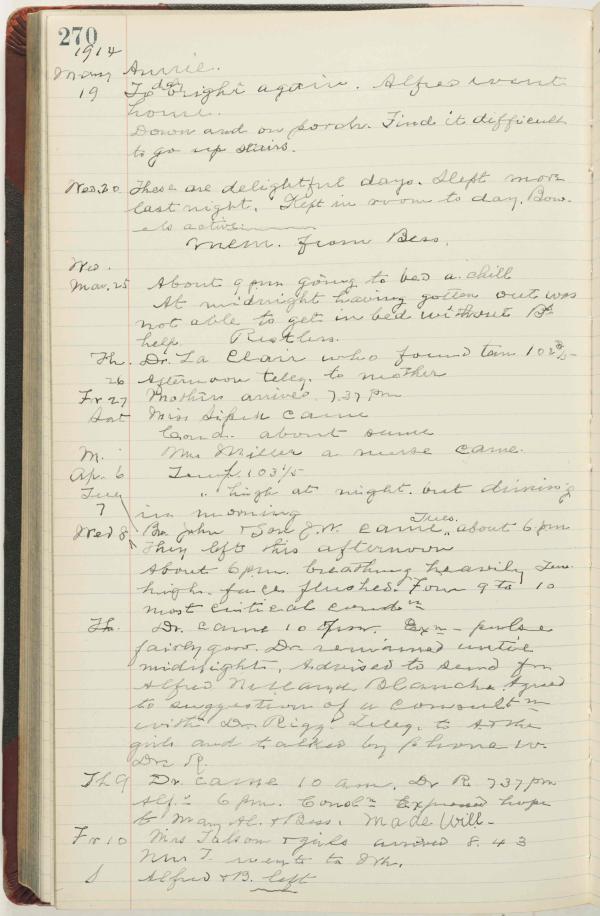 270
1914
May Annie.
19 To day bright again. Alfred went
home.
Down and on porch. Find it difficult
to go up stairs.
Wed. 20 These are delightful days. Slept more
last night. Kept in room to day. Bow-
els active
Mem. from Bess.
Wed.
Mar. 25 About 9 pm going to bed a chill
At midnight having gotten out was
not able to get in bed without B's
help Restless.
Th. Dr. La Clair who found tem 102 3/5
26 Afternoon teleg. to mother
Fr 27 Mothers arrives 7.37 pm
Sat Miss came
Cond. about same
M. Mrs Miller a nurse came.
Ap. 6 Temp. 103 1/5
Tues " high at night but
7 in morning
Wed 8 Bro John & Son J. W. came Tues. about 6 pm
They left this afternoon
About 6 pm. breathing heavily
high. face flushed. From 9 to 10
most critical condn
Th. Dr. came 10 pm. Exn - pulse
fairly good. Dr. remained until
midnight. Advised to send for
Alfred Blanche. Agreed
to suggestion of a consultn
with Dr. Rigg. Teleg. to
girls and talked by phone w.
Dr. R.
Th 9 Dr. came 10 am. Dr R. 7 37 pm
Alf. 6 pm. Expressed hope
to Mary Al. & Bess. Made Will -
Fr 10 Mrs & girls arrived 8.43
Mrs T. went to
S Alfred & B. left